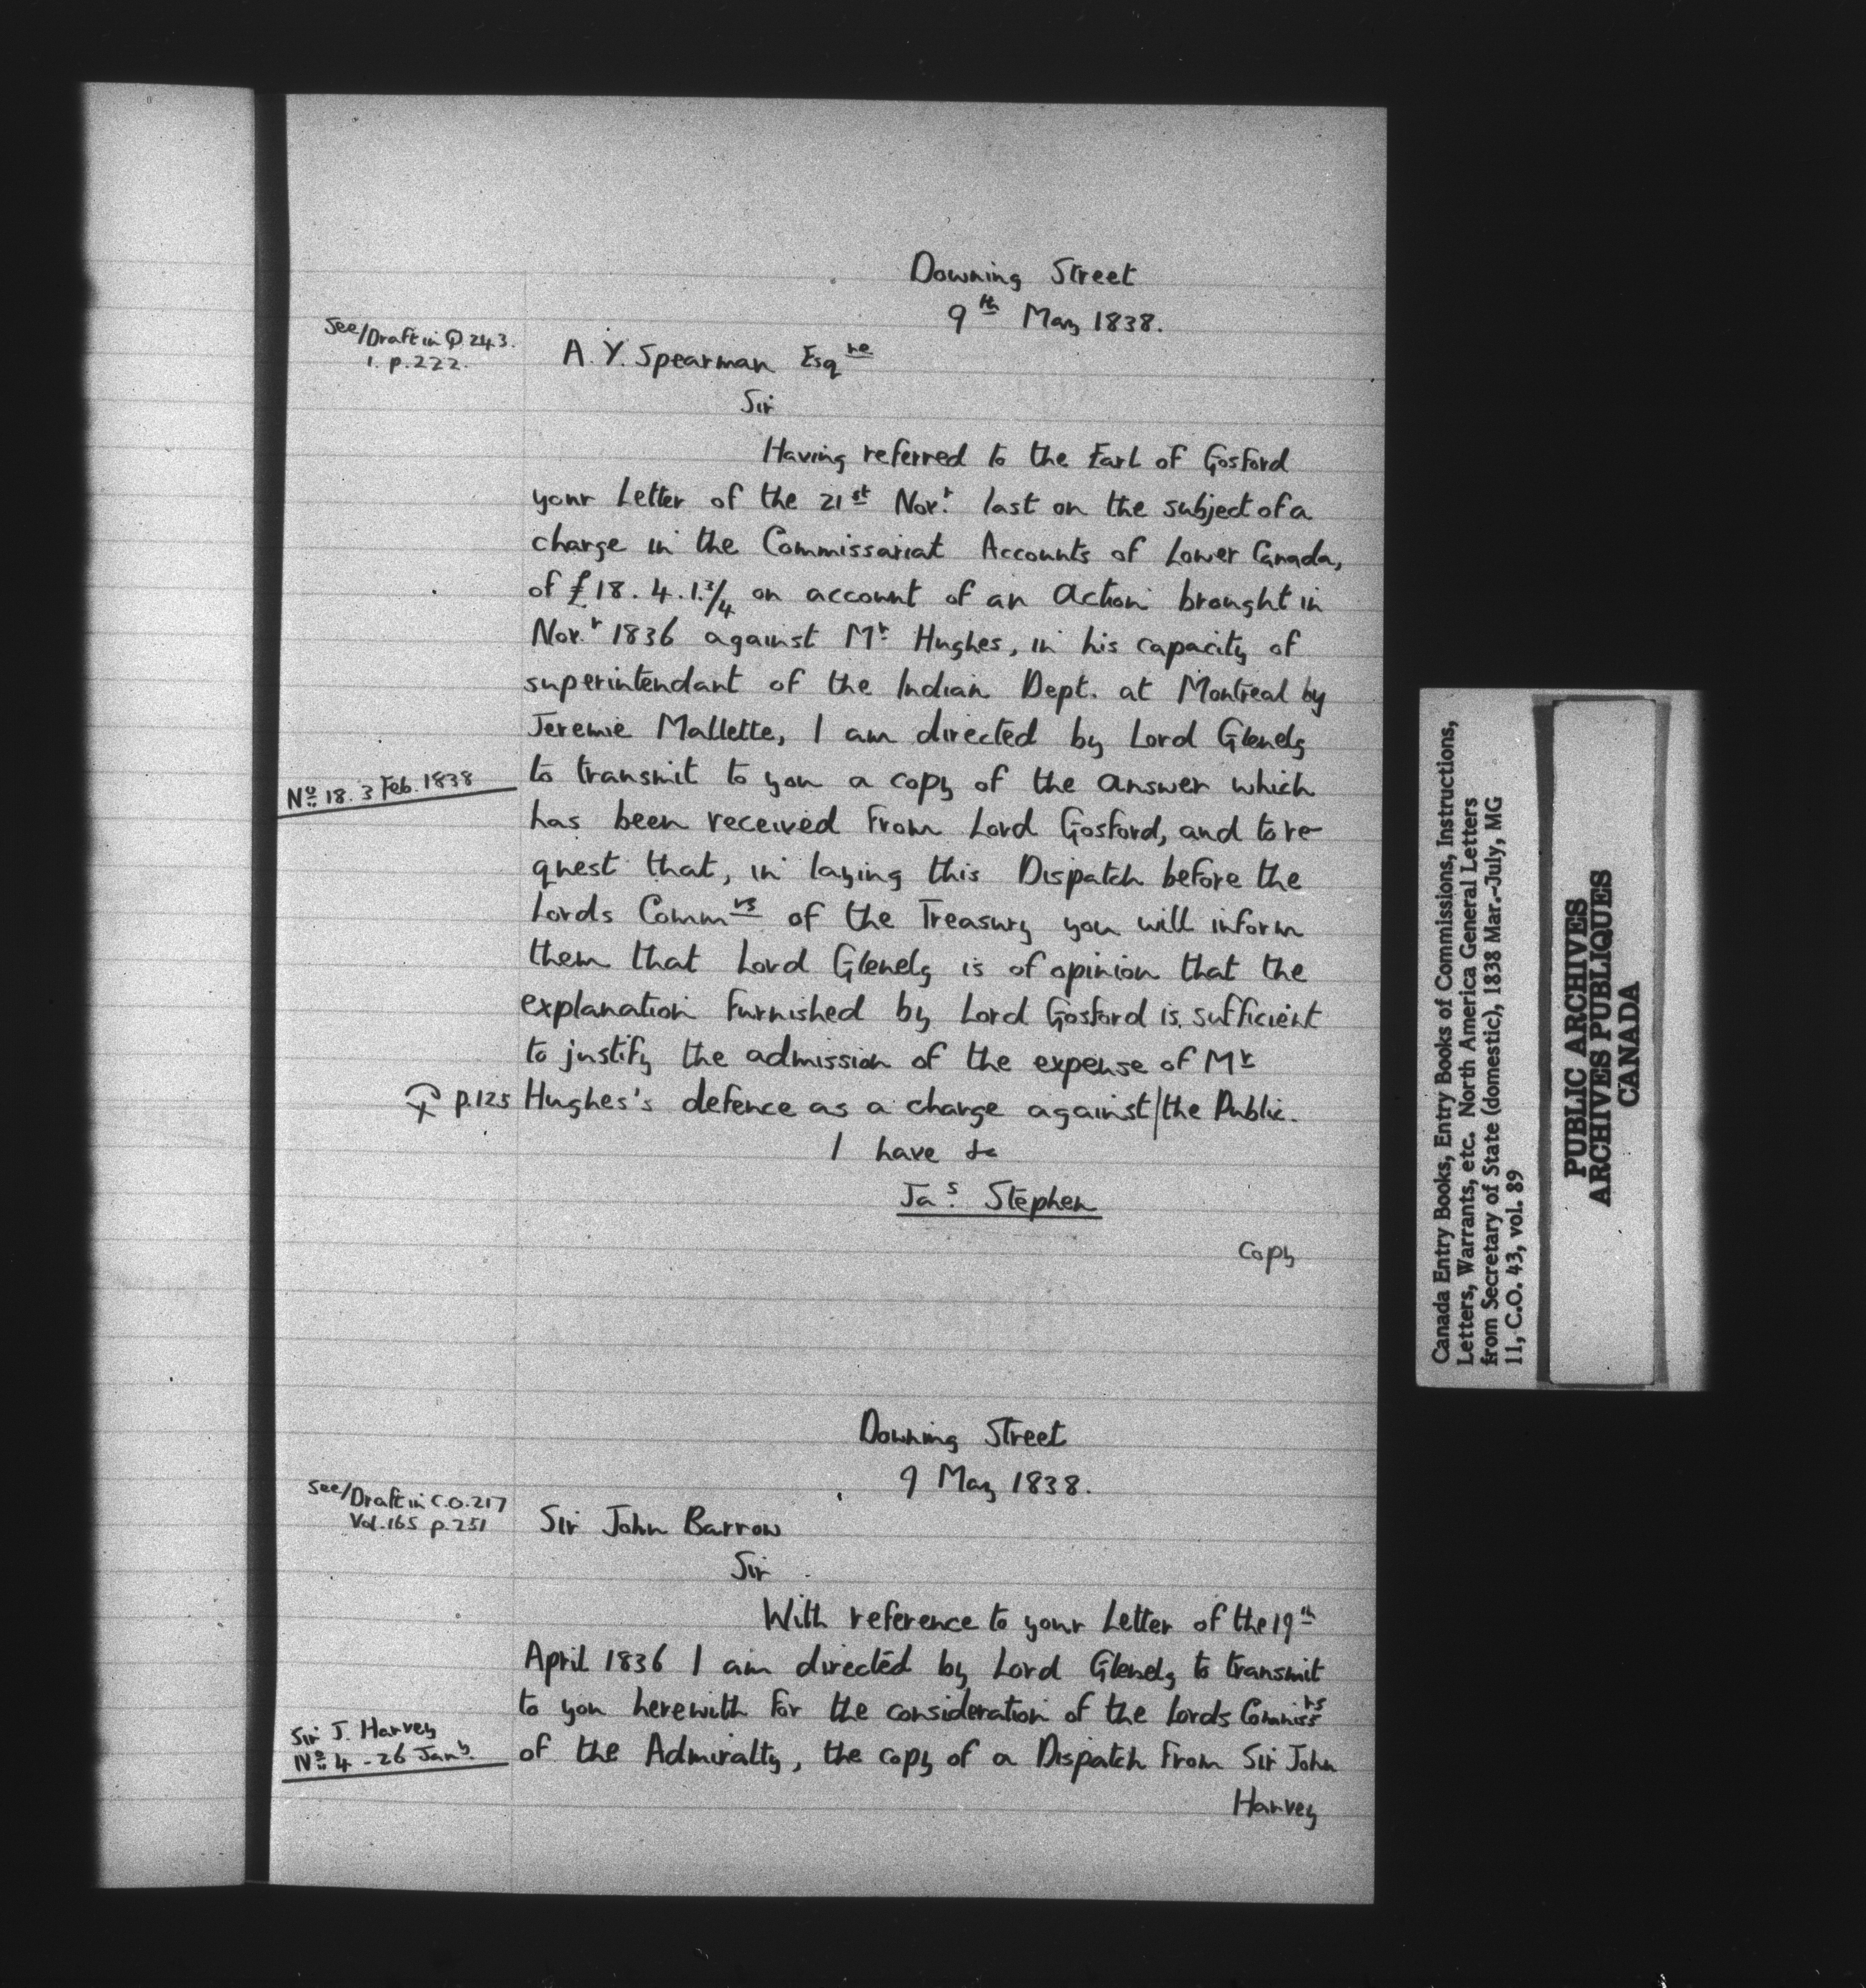 Downing Street
9th May 1838.
See/Draft in Q 243.
1. p.222.
A. Y. Spearman Esqre
Sir
Having referred to the Earl of Gosford
your Letter of the 21st Novr. last on the subject of a
charge in the Commissariat Accounts of Lower Canada,
of £18.4.1.3/4 on account of an Action brought in
Novr. 1836 against Mr. Hughes, in his capacity of
superintendant of the Indian Dept. at Montreal by
Jeremie Mallette, I am directed by Lord Glenelg
No. 18. 3 Feb. 1838
to transmit to you a copy of the answer which
has been received from Lord Gosford, and to re-
quest that, in laying this Dispatch before the
Lords Commrs of the Treasury you will inform
them that Lord Glenelg is of opinion that the
explanation furnished by Lord Gosford is sufficient
to justify the admission of the expense of Mr
p.125 Hughes's defence as a charge against/the Public.
I have &c
Jas. Stephen
Copy
Downing Street
9 May 1838.
See/Draft in C.O.217
Vol.165 p.251
Sir John Barrow
Sir
With reference to your Letter of the 19th
April 1836 I am directed by Lord Glenelg to transmit
to you herewith for the consideration of the Lords Commissrs
Sir J. Harvey
No. 4 - 26 Jany.
of the Admiralty, the copy of a Dispatch from Sir John
Harvey
Canada Entry Books, Entry Books of Commissions, Instructions,
Letters, Warrants, etc. North America General Letters
from Secretary of State (domestic), 1838 Mar.-July, MG
11, C.O. 43, vol. 89
PUBLIC ARCHIVES
ARCHIVES PUBLIQUES
CANADA